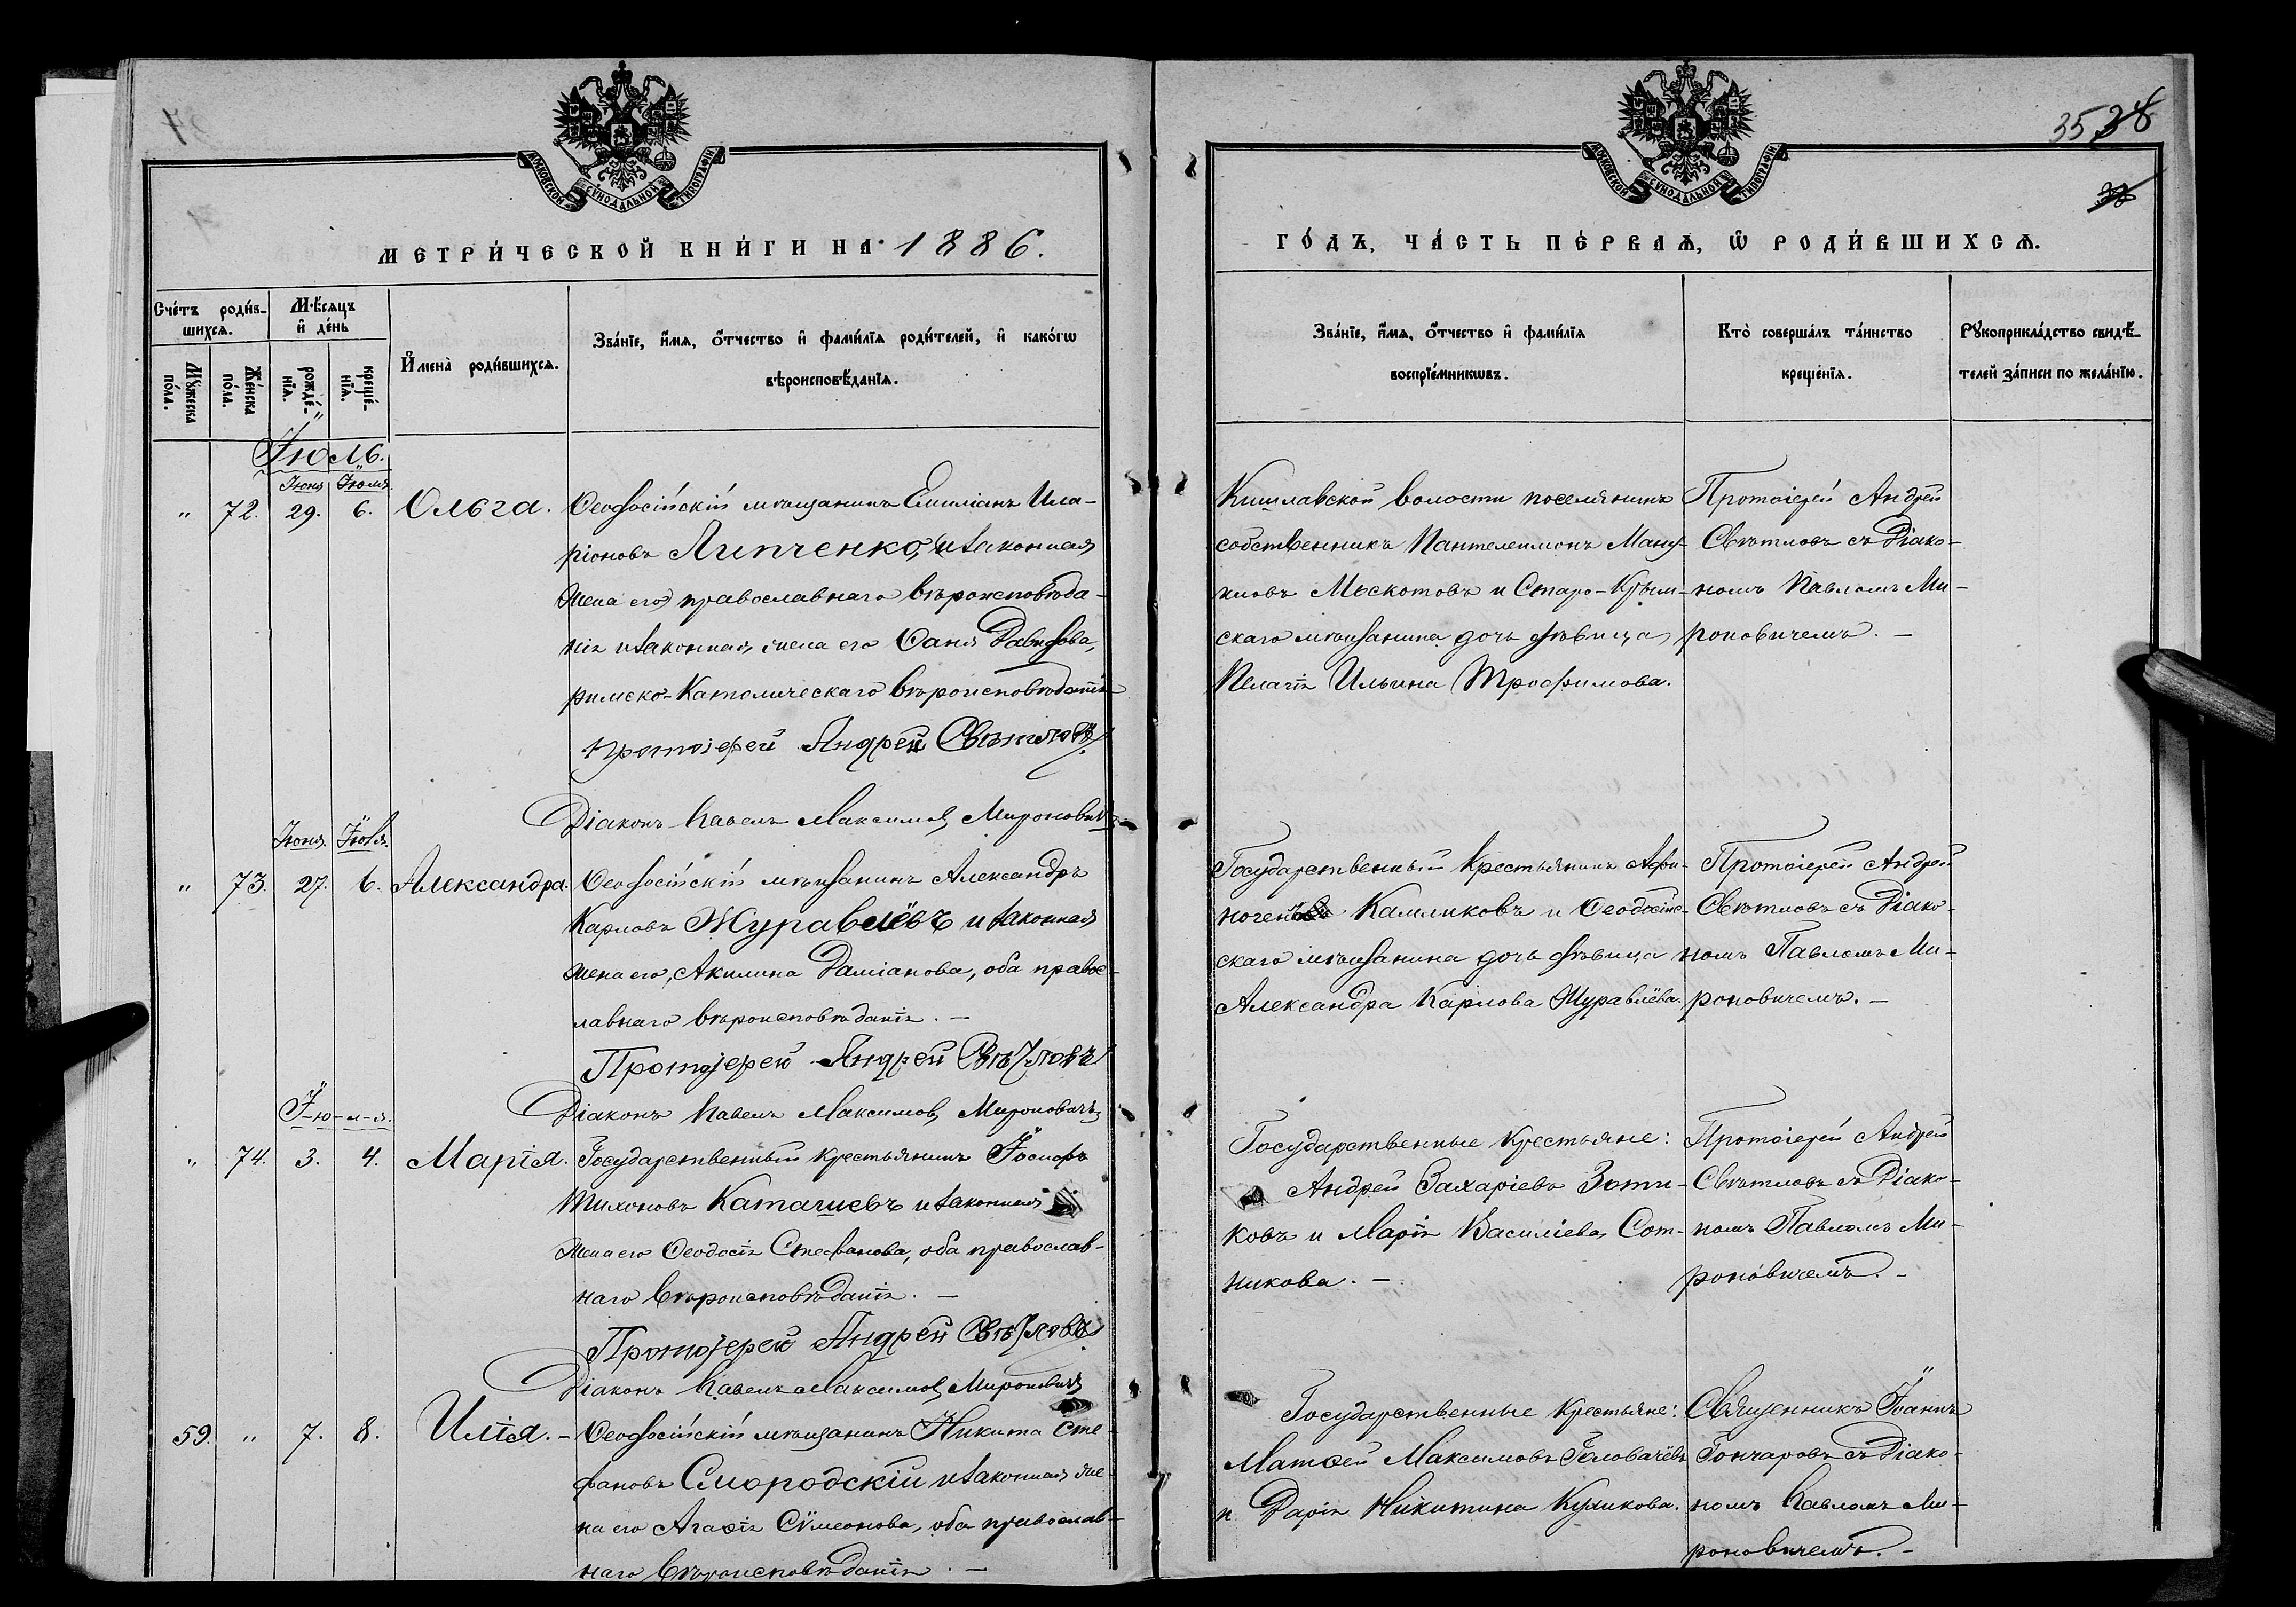 35 38
38
МОСКОВСКОЙ СѴНОДАЛЬНОЙ ТИПОГРАФІИ
МОСКОВСКОЙ СѴНОДАЛЬНОЙ ТИПОГРАФІИ
МЕТРИ́ЧЕСКОЙ КНИ́ГИ НА 1886.
ГО́ДЪ, ЧА́СТЬ ПЕ́РВАѦ, Ѡ РОДИ́ВШИХСѦ.
Сче́тъ роди́в-
шихсѧ.
Мꙋ́жеска по́ла.
Же́нска по́ла.
Мѣ́сѧцъ и҆ де́нь
рожде́-нїѧ.
креще́-нїѧ.
И҆мена̀ роди́вшихсѧ.
Зва́нїе, и҆́мѧ, ѻ҆́тчество и҆ фами́лїѧ роди́телей, и҆ како́гѡ
вѣроисповѣ́данїѧ.
Зва́нїе, и҆́мѧ, ѻ҆́тчество и҆ фами́лїѧ
воспрїе́мникѡвъ.
Кто̀ соверша́лъ та́инство
креще́нїѧ.
Рꙋкоприкла́дство свидѣ́-
телей за́писи по жела́нїю.
Іюль.
Іюня Іюля.
" 72. 29. 6. Ольга.
Ѳеодосійскій мѣщанинъ Емиліанъ Ила-
ріоновъ Липченко, и законная
жена его православнаго вѣроисповѣда-
нія и законная жена его Ѳаня Давидова,
римско-Католическаго вѣроисповѣданія
Протоіерей Андрей Свѣтловъ
Діаконъ Павелъ Максимов. Мироновичъ
Кишлавской волости поселянинъ
собственникъ Пантелеимонъ Ману-
иловъ Мьскотовъ и Старо-Крым-
скаго мѣщанина дочь дѣвица
Пелагія Ильина Трофимова.
Протоіерей Андрей
Свѣтловъ съ Діако-
номъ Павломъ Ми-
роновичемъ. —
Іюня. Іюля.
" 73. 27. 6. Александра.
Ѳеодосійскій мѣщанинъ Александръ
Карповъ Журавлёвъ и законная
жена его, Акилина Даміанова, оба правос-
лавнаго вѣроисповѣданія. —
Протоіерей Андрей Свѣтловъ
Діаконъ Павелъ Максимов. Мироновичъ
Государственный Крестьянинъ Афи-
ногенъ Калмыковъ и Ѳеодосій-
скаго мѣщанина дочь дѣвица
Александра Карпова Журавлёва.
Протоіерей Андрей
Свѣтловъ съ Діако-
номъ Павломъ Ми-
роновичемъ. —
І-ю-л-я.
" 74. 3. 4. Марія.
Государственный крестьянинъ Іосифъ
Тихоновъ Каташевъ и законная
жена его Ѳеодосія Стефанова, оба православ-
наго вѣроисповѣданія. —
Протоіерей Андрей Свѣтловъ
Діаконъ Павелъ Максимов. Мироновичъ
Государственные Крестьяне:
Андрей Захаріевъ Зоти-
ковъ и Марія Василіева Сот-
никова. —
Протоіерей Андрей
Свѣтловъ съ Діако-
номъ Павломъ Ми-
роновичемъ. —
59. " 7. 8. Илія. —
Ѳеодосійскій мѣщанинъ Никита Сте-
фановъ Смородскій и законная же-
на его Агаѳія Сѵмеонова, оба православ-
наго вѣроисповѣданія. —
Государственные Крестьяне:
Матѳей Максимовъ Головачёвъ
и Дарія Никитина Куликова.
Священникъ Іоаннъ
Гончаровъ съ Діако-
номъ Павломъ Ми-
роновичемъ. —